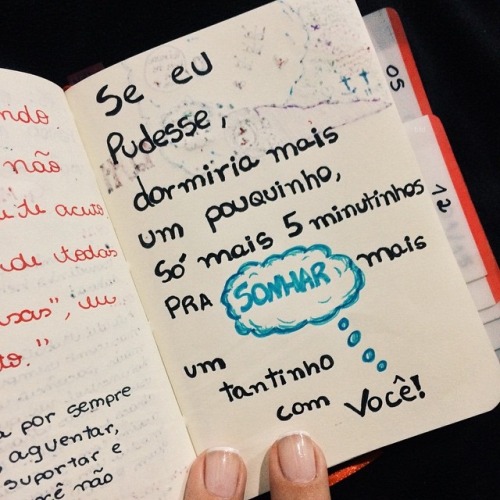 ndo
não
e te acuto
de todas
isas", eu
to."
a por sempre
aguentar,
suportar e
cê não
Se eu
Pudesse,
dormiria mais
um pouquinho,
Só mais 5 minutinhos
PRA SONHAR mais
um
tantinho
com Você!
05
12